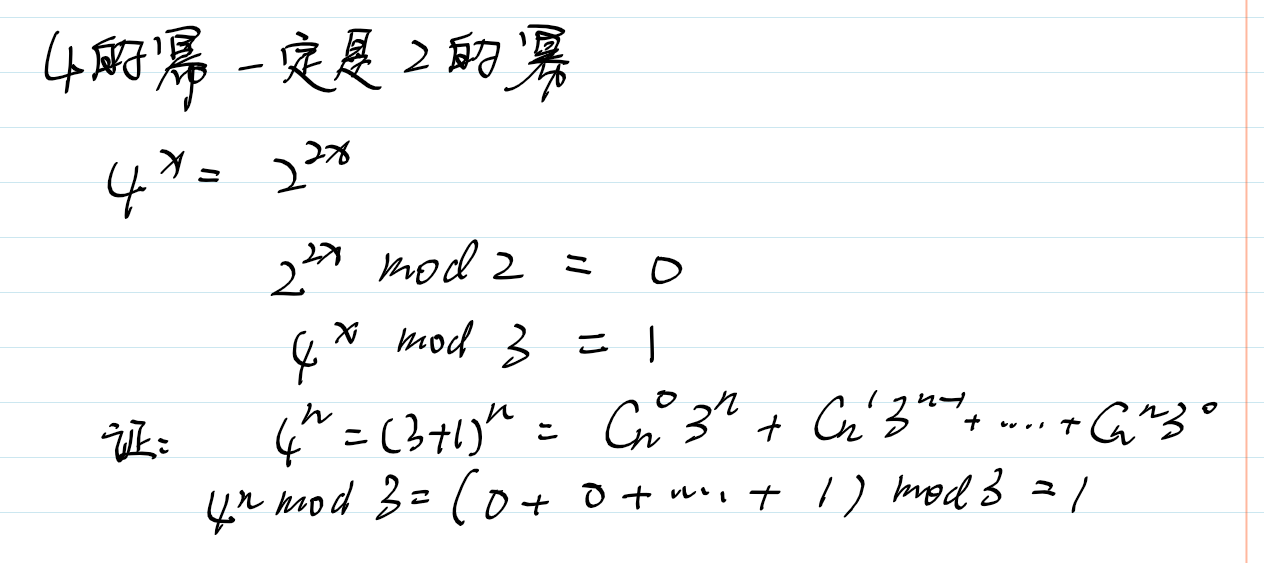 4的幂一定是2的幂
4^x = 2^{2x}
2^{2x} mod 2 = 0
4^x mod 3 = 1
证: 4^n = (3+1)^n = C_n^0 3^n + C_n^1 3^{n-1} + ····· + C_n^n 3^0
4^n mod 3 = (0 + 0 + ···· + 1) mod 3 = 1